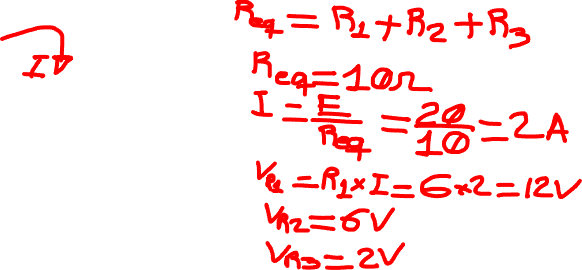 Req = R1 + R2 + R3
I
Req = 10Ω
I = E/Req = 20/10 = 2A
VR1 = R1 × I = 6 × 2 = 12V
VR2 = 6V
VR3 = 2V